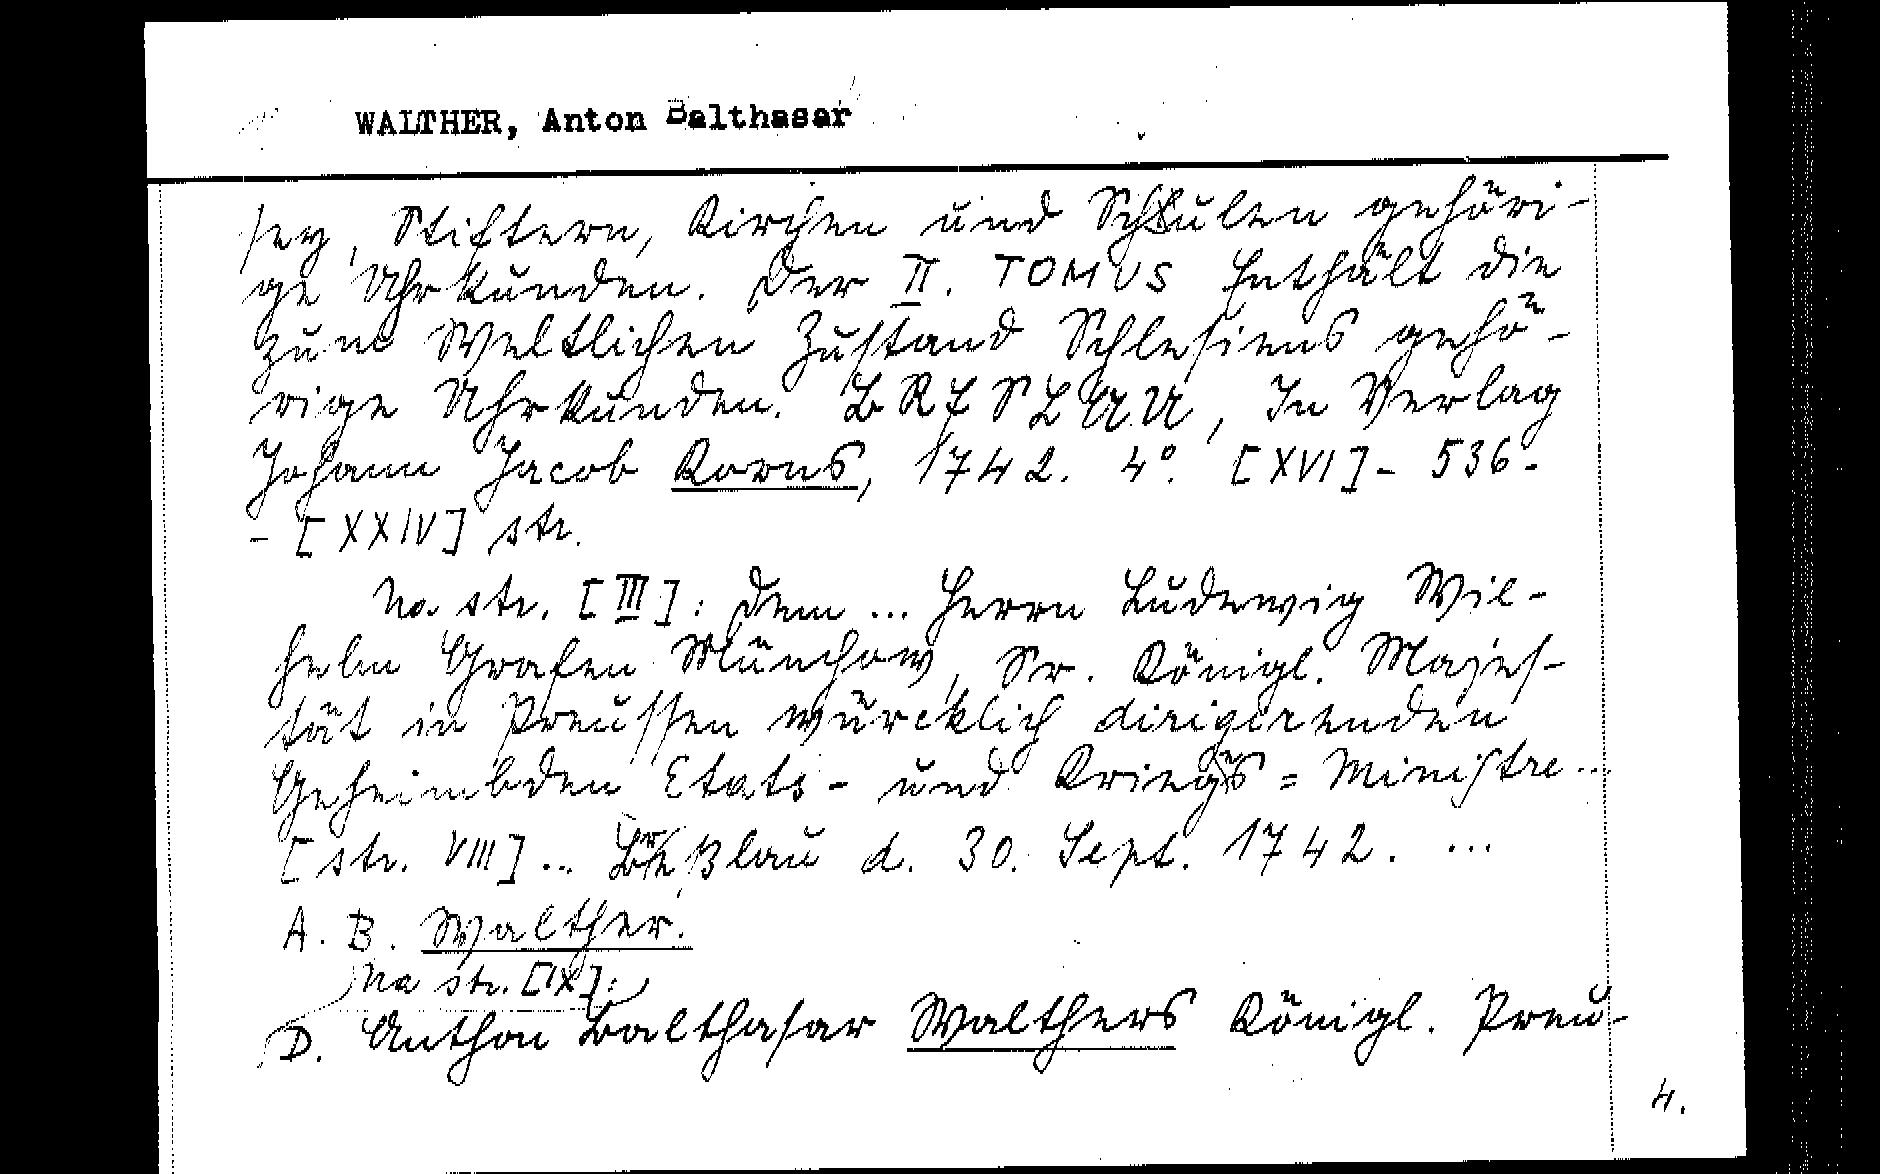 WALTHER, Anton Balthasar
sey, Stiftern, Kirchen und Schulen gehöri-
ge Uhrkunden. Der II. TOMUS Enthält die
zum Weltlichen Zustand Schlesiens gehö-
rige Uhrkunden. BRESLAU, In Verlag
Johann Jacob Korns, 1742. 4º. [XVI]- 536-
- [XXIV] str.
Na str. [III]: Dem ... Herrn Ludewig Wil-
helm Grafen Münchow, Sr. Königl. Majes-
tät in Preussen würcklich dirigirenden
Geheimbden Etats- und Kriegs = Ministre ...
[str. VIII] ... Breßlau d. 30. Sept. 1742. ...
A. B. Walther.
Na str. [IX]:
D. Anthon Balthasar Walthers Königl. Preu-
4.